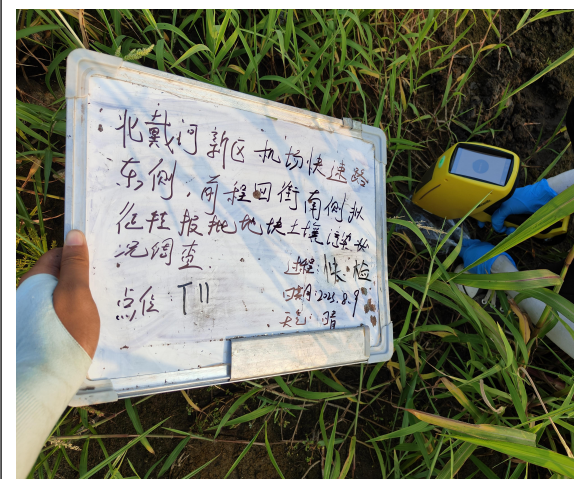 北戴河新区机场快速路
东侧、前程四街南侧拟
征轻报批地块土壤污染状
况调查
过程:快检
点位:T11
日期:2023.8.9
天气:晴